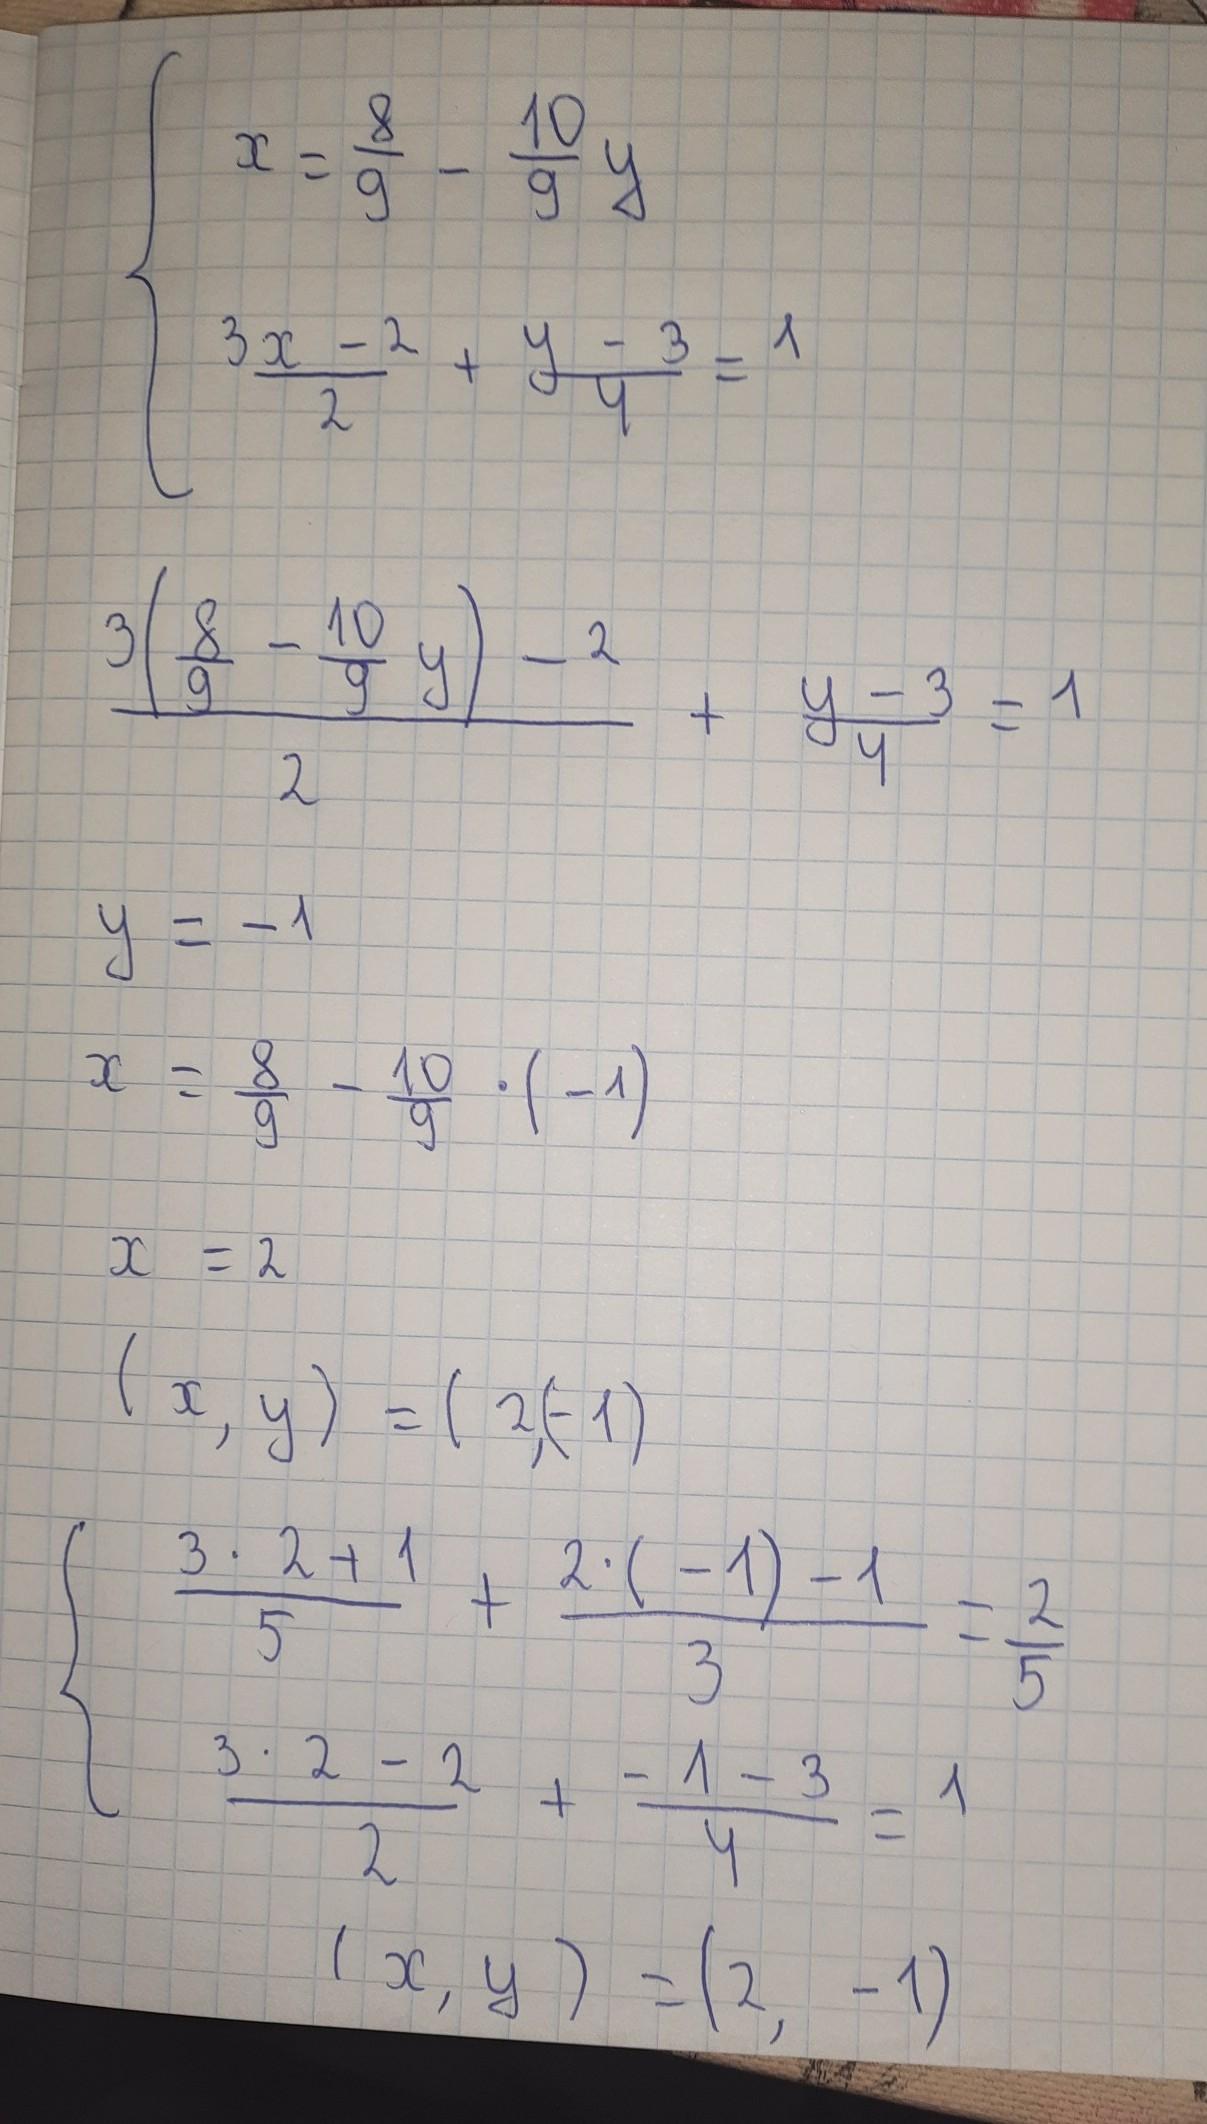 x = 8/9 - 10/9 y
3x - 2/2 + y - 3/4 = 1
3(8/9 - 10/9 y) - 2/2 + y - 3/4 = 1
y = -1
x = 8/9 - 10/9 · (-1)
x = 2
(x, y) = (2, (-1)
3 · 2 + 1/5 + 2 · (-1) - 1/3 = 2/5
3 · 2 - 2/2 + -1 - 3/4 = 1
(x, y) = (2, -1)